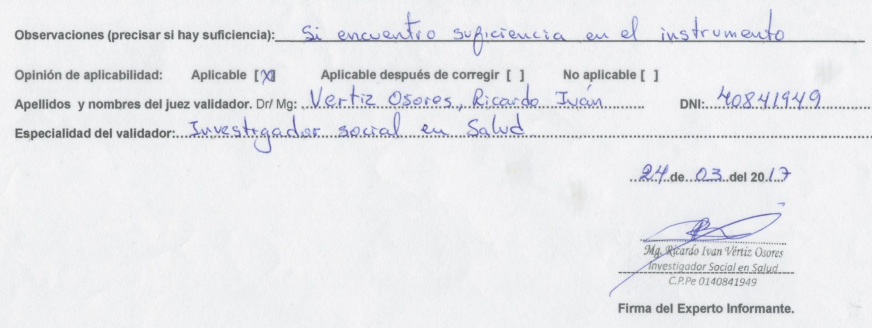 Observaciones (precisar si hay suficiencia): Si encuentro suficiencia en el instrumento
Opinión de aplicabilidad: Aplicable [X] Aplicable después de corregir [ ] No aplicable [ ]
Apellidos y nombres del juez validador. Dr/ Mg: Vertiz Osores, Ricardo Iván DNI: 40841949
Especialidad del validador: Investigador social en Salud
24 de 03 del 2017
Mg. Ricardo Ivan Vértiz Osores
Investigador Social en Salud
C.P.Pe 0140841949
Firma del Experto Informante.